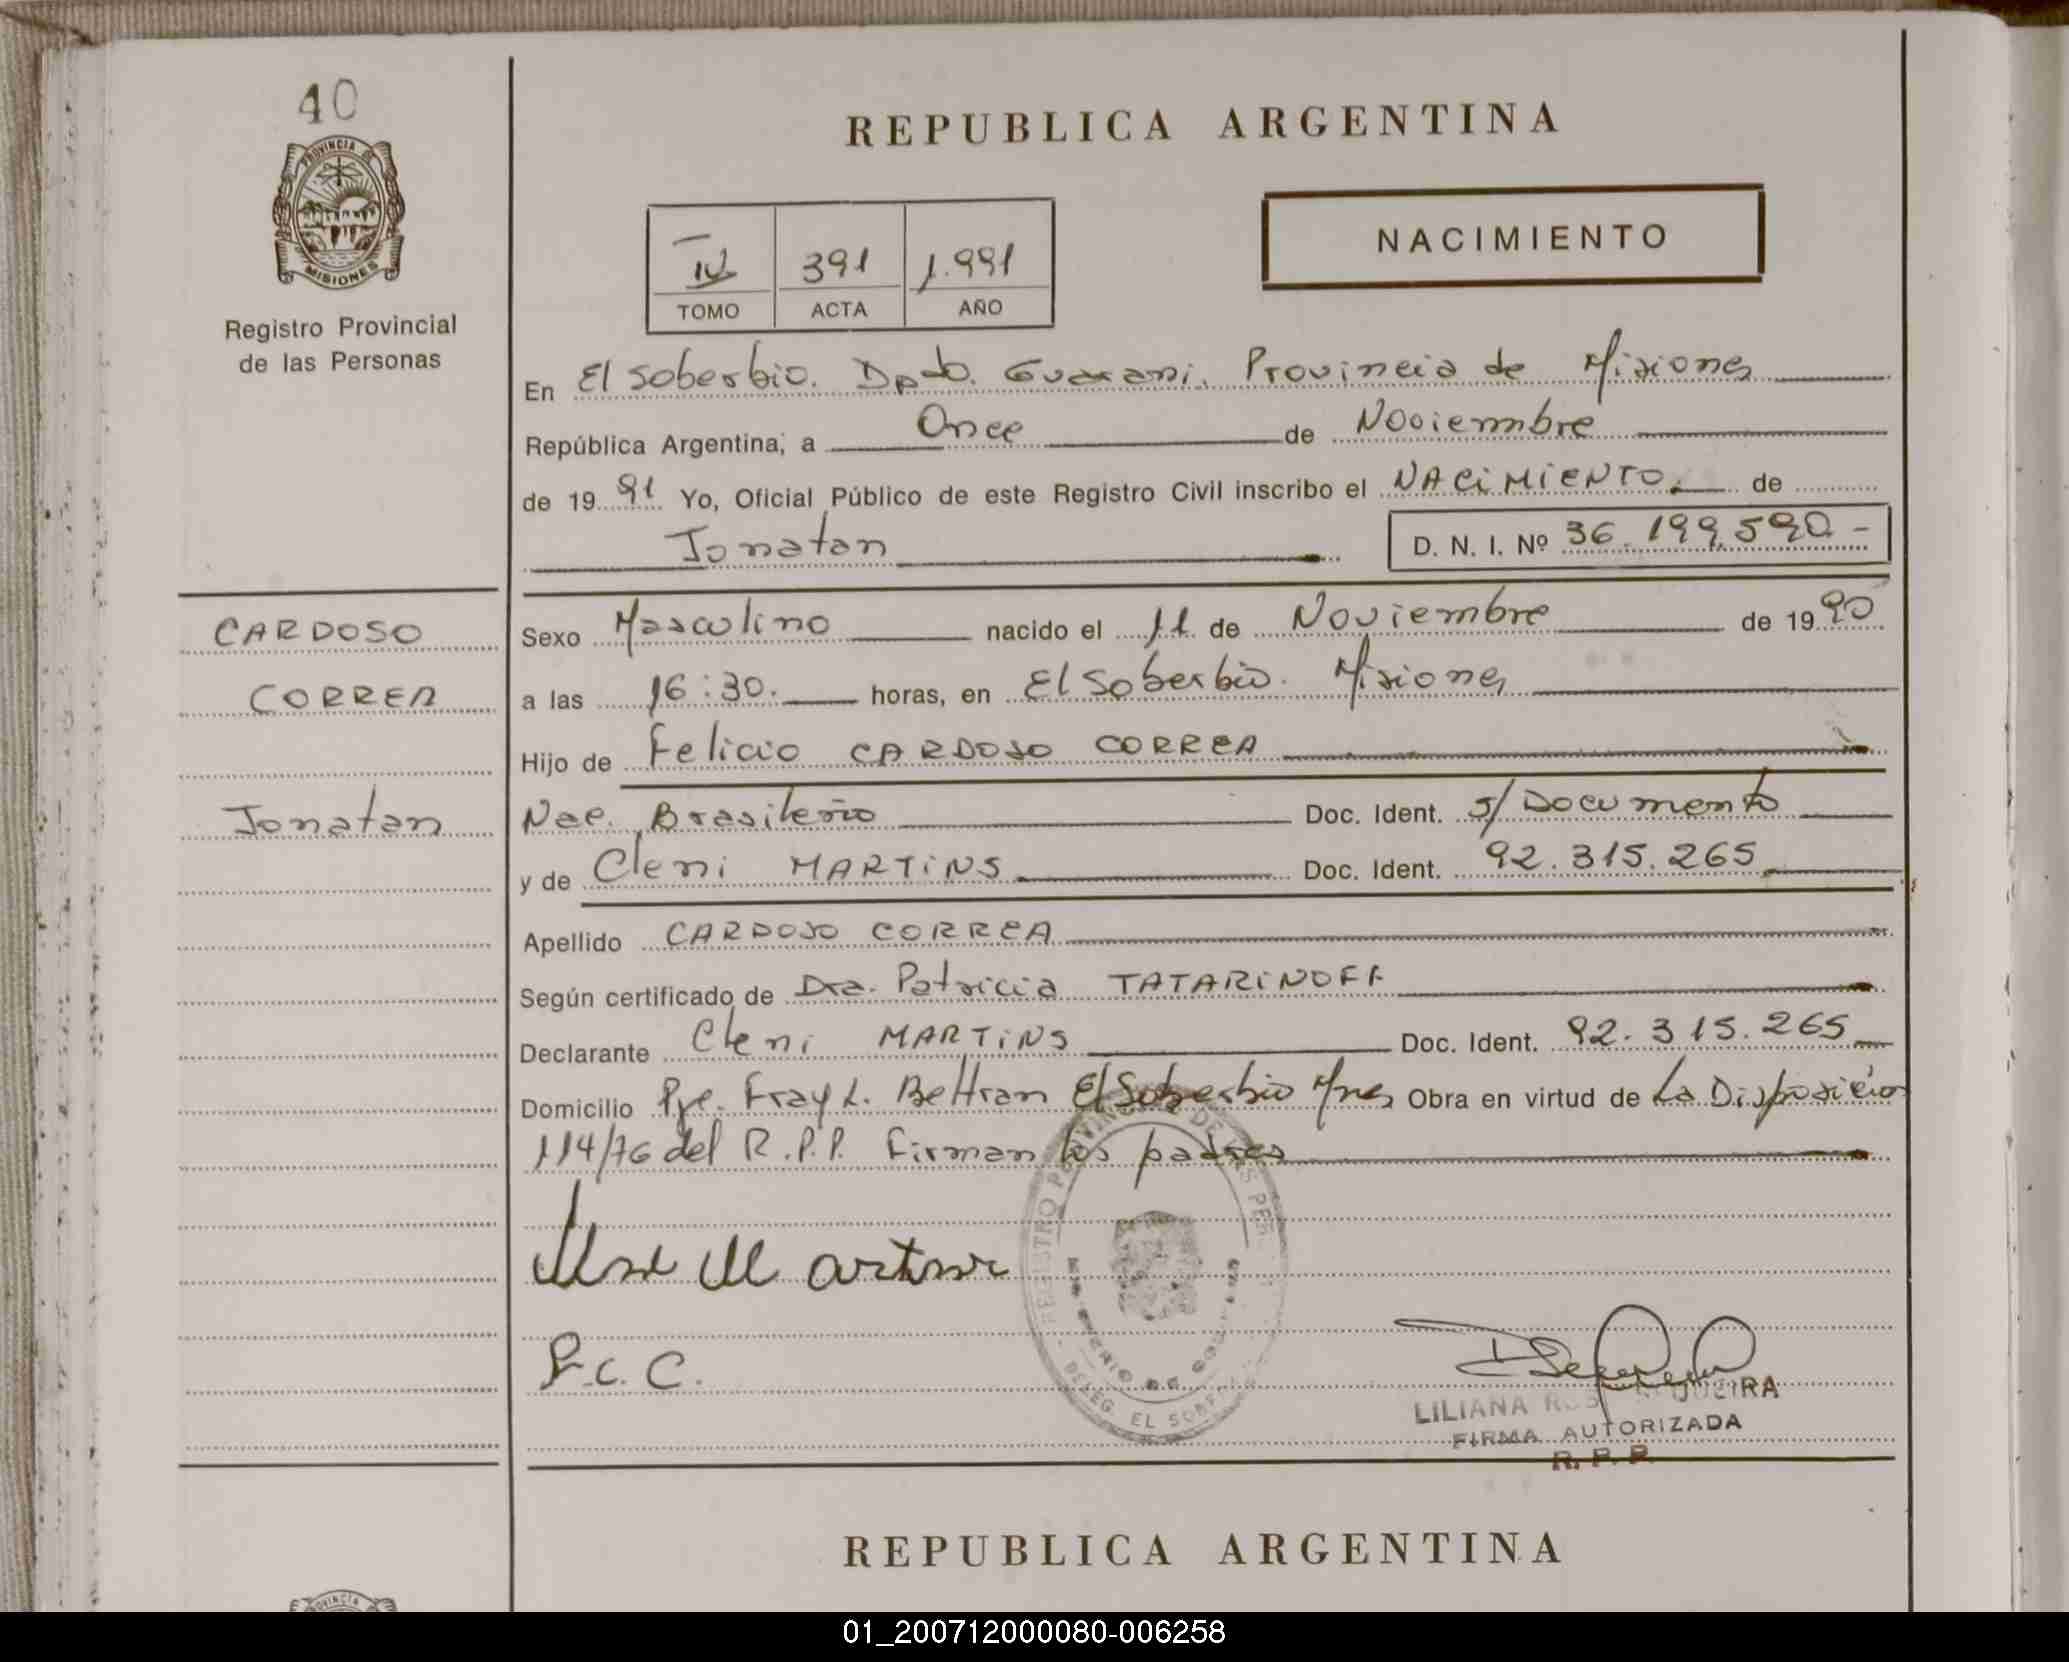 40
PROVINCIA DE
MISIONES
Registro Provincial
de las Personas
REPUBLICA ARGENTINA
IV 391 1.991
TOMO ACTA AÑO
NACIMIENTO
En El Soberbio. Dpto. Guarani. Provincia de Misiones
República Argentina, a Once de Noviembre
de 19 91 Yo, Oficial Público de este Registro Civil inscribo el NACIMIENTO. de
Jonatan D. N. I. Nº 36.199.590.-
CARDOSO
CORREA
Jonatan
Sexo Masculino nacido el 11 de Noviembre de 19 90
a las 16:30. horas, en El Soberbio. Misiones
Hijo de Felicio CARDOSO CORREA
Nac. Brasileño Doc. Ident. s/Documento
y de Cleni MARTINS Doc. Ident. 92.315.265
Apellido CARDOSO CORREA
Según certificado de Dra. Patricia TATARINOFF
Declarante Cleni MARTINS Doc. Ident. 92.315.265
Domicilio Pje. Fray L. Beltran El Soberbio Mnes Obra en virtud de La Disposición
114/76 del R.P.P. Firman los padres
F.C.C.
DELEG. EL SOBERBIO
LILIANA
FIRMA AUTORIZADA
R. P. P.
REPUBLICA ARGENTINA
PROVINCIA
01_200712000080-006258